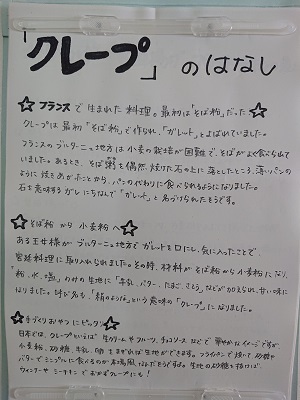 「クレープ」のはなし
☆フランスで生まれた料理。最初は「そば粉」だった☆
クレープは最初「そば粉」で作られ、「ガレット」とよばれていました。
フランスのブルターニュ地方は小麦の栽培が困難で、そばがよく食べられて
いました。あるとき、そば粥を偶然、焼けた石の上に落としたところ、薄いパンの
ように焼きあがったことから、パンの代わりに食べられるようになりました。
石を意味するガレにちなんで「ガレット」と名づけられたそうです。
☆そば粉から小麦粉へ☆
ある王妃様がブルターニュ地方でガレットを口にし、気に入ったことで、
宮廷料理に取り入れられました。その時、材料がそば粉から小麦粉になり、
「粉、水、塩」のみの生地に「牛乳、バター、たまご、さとう」などが加えられ、甘い味に
なりました。呼び名も、「絹のような」という意味の「クレープ」になりました。
☆手づくりおやつにピッタリ☆
日本では、クレープといえば「生クリームやフルーツ、チョコソース」などで華やかなイメージですが、
小麦粉、砂糖、牛乳、卵をまぜれば生地ができます。フライパンで焼いて砂糖や
バターでシンプルに食べるのが本場風なんだそうですよ。生地の砂糖を抜けば、
ウィンナーやシーチキンでおかずクレープにも!